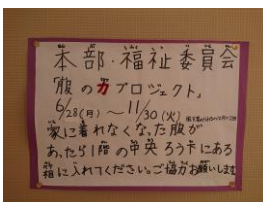 本部・福祉委員会
「服の力プロジェクト」
6/28(月)〜11/30(火)
家に着れなくなった服が
あったら1階の中央ろう下にある
箱に入れてください。ご協力お願いします